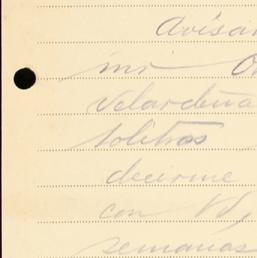 avisar
mi
Velardeña
solitas
decirme
con Vd,
semanas